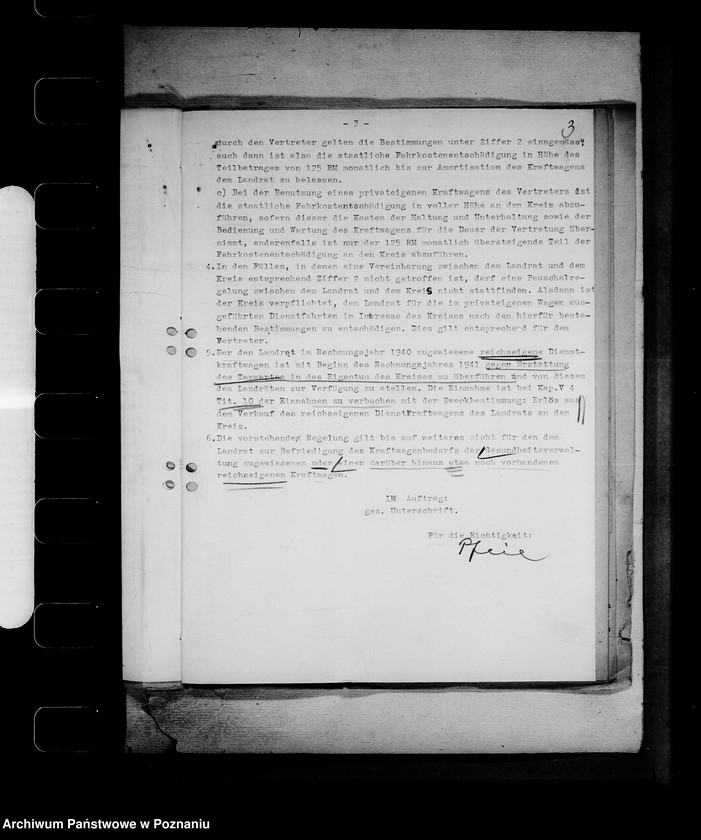 - 3 -
3
durch den Vertreter gelten die Bestimmungen unter Ziffer 2 sinngemäss,
auch dann ist also die staatliche Fahrkostenentschädigung in Höhe des
Teilbetrages von 125 RM monatlich bis zur Amortisation des Kraftwagens
dem Landrat zu belassen.
c) Bei der Benutzung eines privateigenen Kraftwagens des Vertreters ist
die staatliche Fahrkostenentschädigung in voller Höhe an den Kreis abzu-
führen, sofern dieser die Kosten der Haltung und Unterhaltung sowie der
Bedienung und Wartung des Kraftwagens für die Dauer der Vertretung über-
nimmt, anderenfalls ist nur der 125 RM monatlich übersteigende Teil der
Fahrkostenentschädigung an den Kreis abzuführen.
4. In den Fällen, in denen eine Vereinbarung zwischen dem Landrat und dem
Kreis entsprechend Ziffer 2 nicht getroffen ist, darf eine Pauschalre-
gelung zwischen dem Landrat und dem Kreis nicht stattfinden. Alsdann ist
der Kreis verpflichtet, den Landrat für die im privateigenen Wagen aus-
geführten Dienstfahrten im Interesse des Kreises nach den hierfür beste-
henden Bestimmungen zu entschädigen. Dies gilt entsprechend für den
Vertreter.
5. Der den Landrat im Rechnungsjahr 1940 zugewiesene reichseigene Dienst-
kraftwagen ist mit Beginn des Rechnungsjahres 1941 gegen Erstattung
des Taxwertes in das Eigentum des Kreises zu überführen und von diesem
den Landräten zur Verfügung zu stellen. Die Einnahme ist bei Kap. V 4
Tit. 10 der Einnahmen zu verbuchen mit der Zweckbestimmung: Erlös aus
dem Verkauf des reichseigenen Dienstkraftwagens des Landrats an den
Kreis.
6. Die vorstehende Regelung gilt bis auf weiteres nicht für den dem
Landrat zur Befriedigung des Kraftwagenbedarfs der Gesundheitsverwal-
tung zugewiesenen oder einen darüber hinaus etwa noch vorhandenen
reichseigenen Kraftwagen.
IM Auftrag:
gez. Unterschrift.
Für die Richtigkeit:
Archiwum Państwowe w Poznaniu